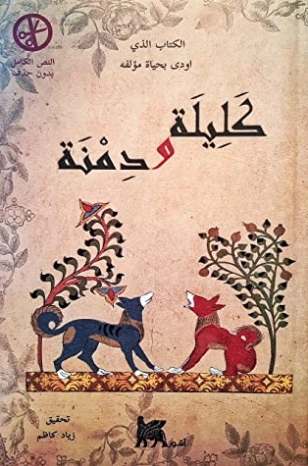 الكتاب الذي
اودى بحياة مؤلفه
النص الكامل
بدون حذف
كَلِيلَة
و دِمْنَة
تحقيق
زياد كاظم
آشور